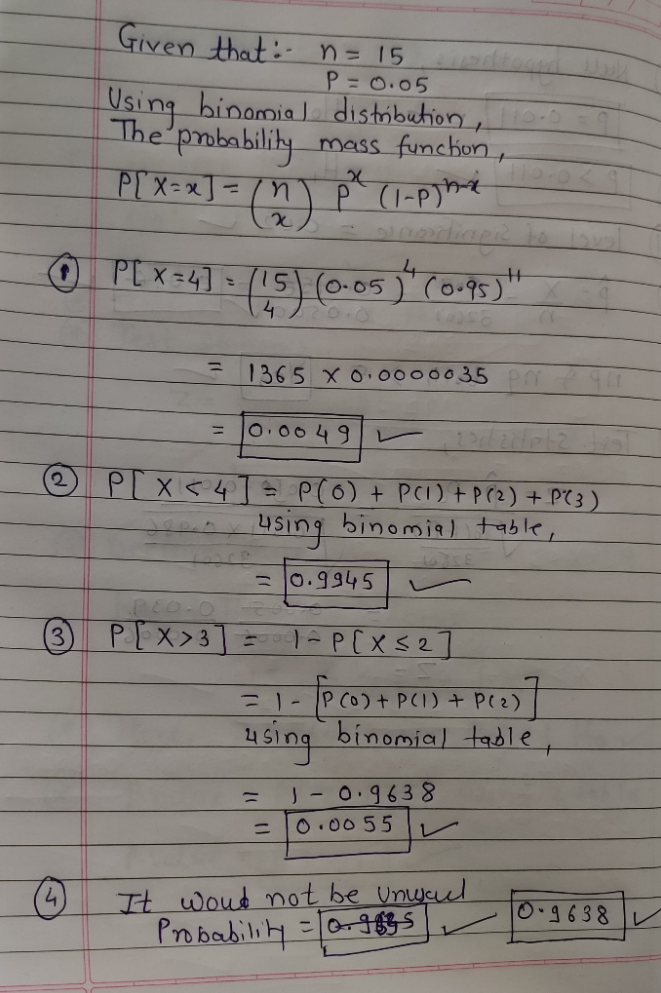 Given that:- n = 15
P = 0.05
Using binomial distribution,
The probability mass function,
P[X=x] = (n x) p^x (1-P)^n-x
① P[X=4] = (15 4) (0.05)^4 (0.95)^11
= 1365 x 0.0000035
= 0.0049 ✓
② P[X < 4] = P(0) + P(1) + P(2) + P(3)
using binomial table,
= 0.9945 ✓
③ P[X>3] = 1 - P[X ≤ 2]
= 1 - [P(0) + P(1) + P(2)]
using binomial table,
= 1 - 0.9638
= 0.0055 ✓
④ It woud not be
Probability = ✓ 0.9638 ✓